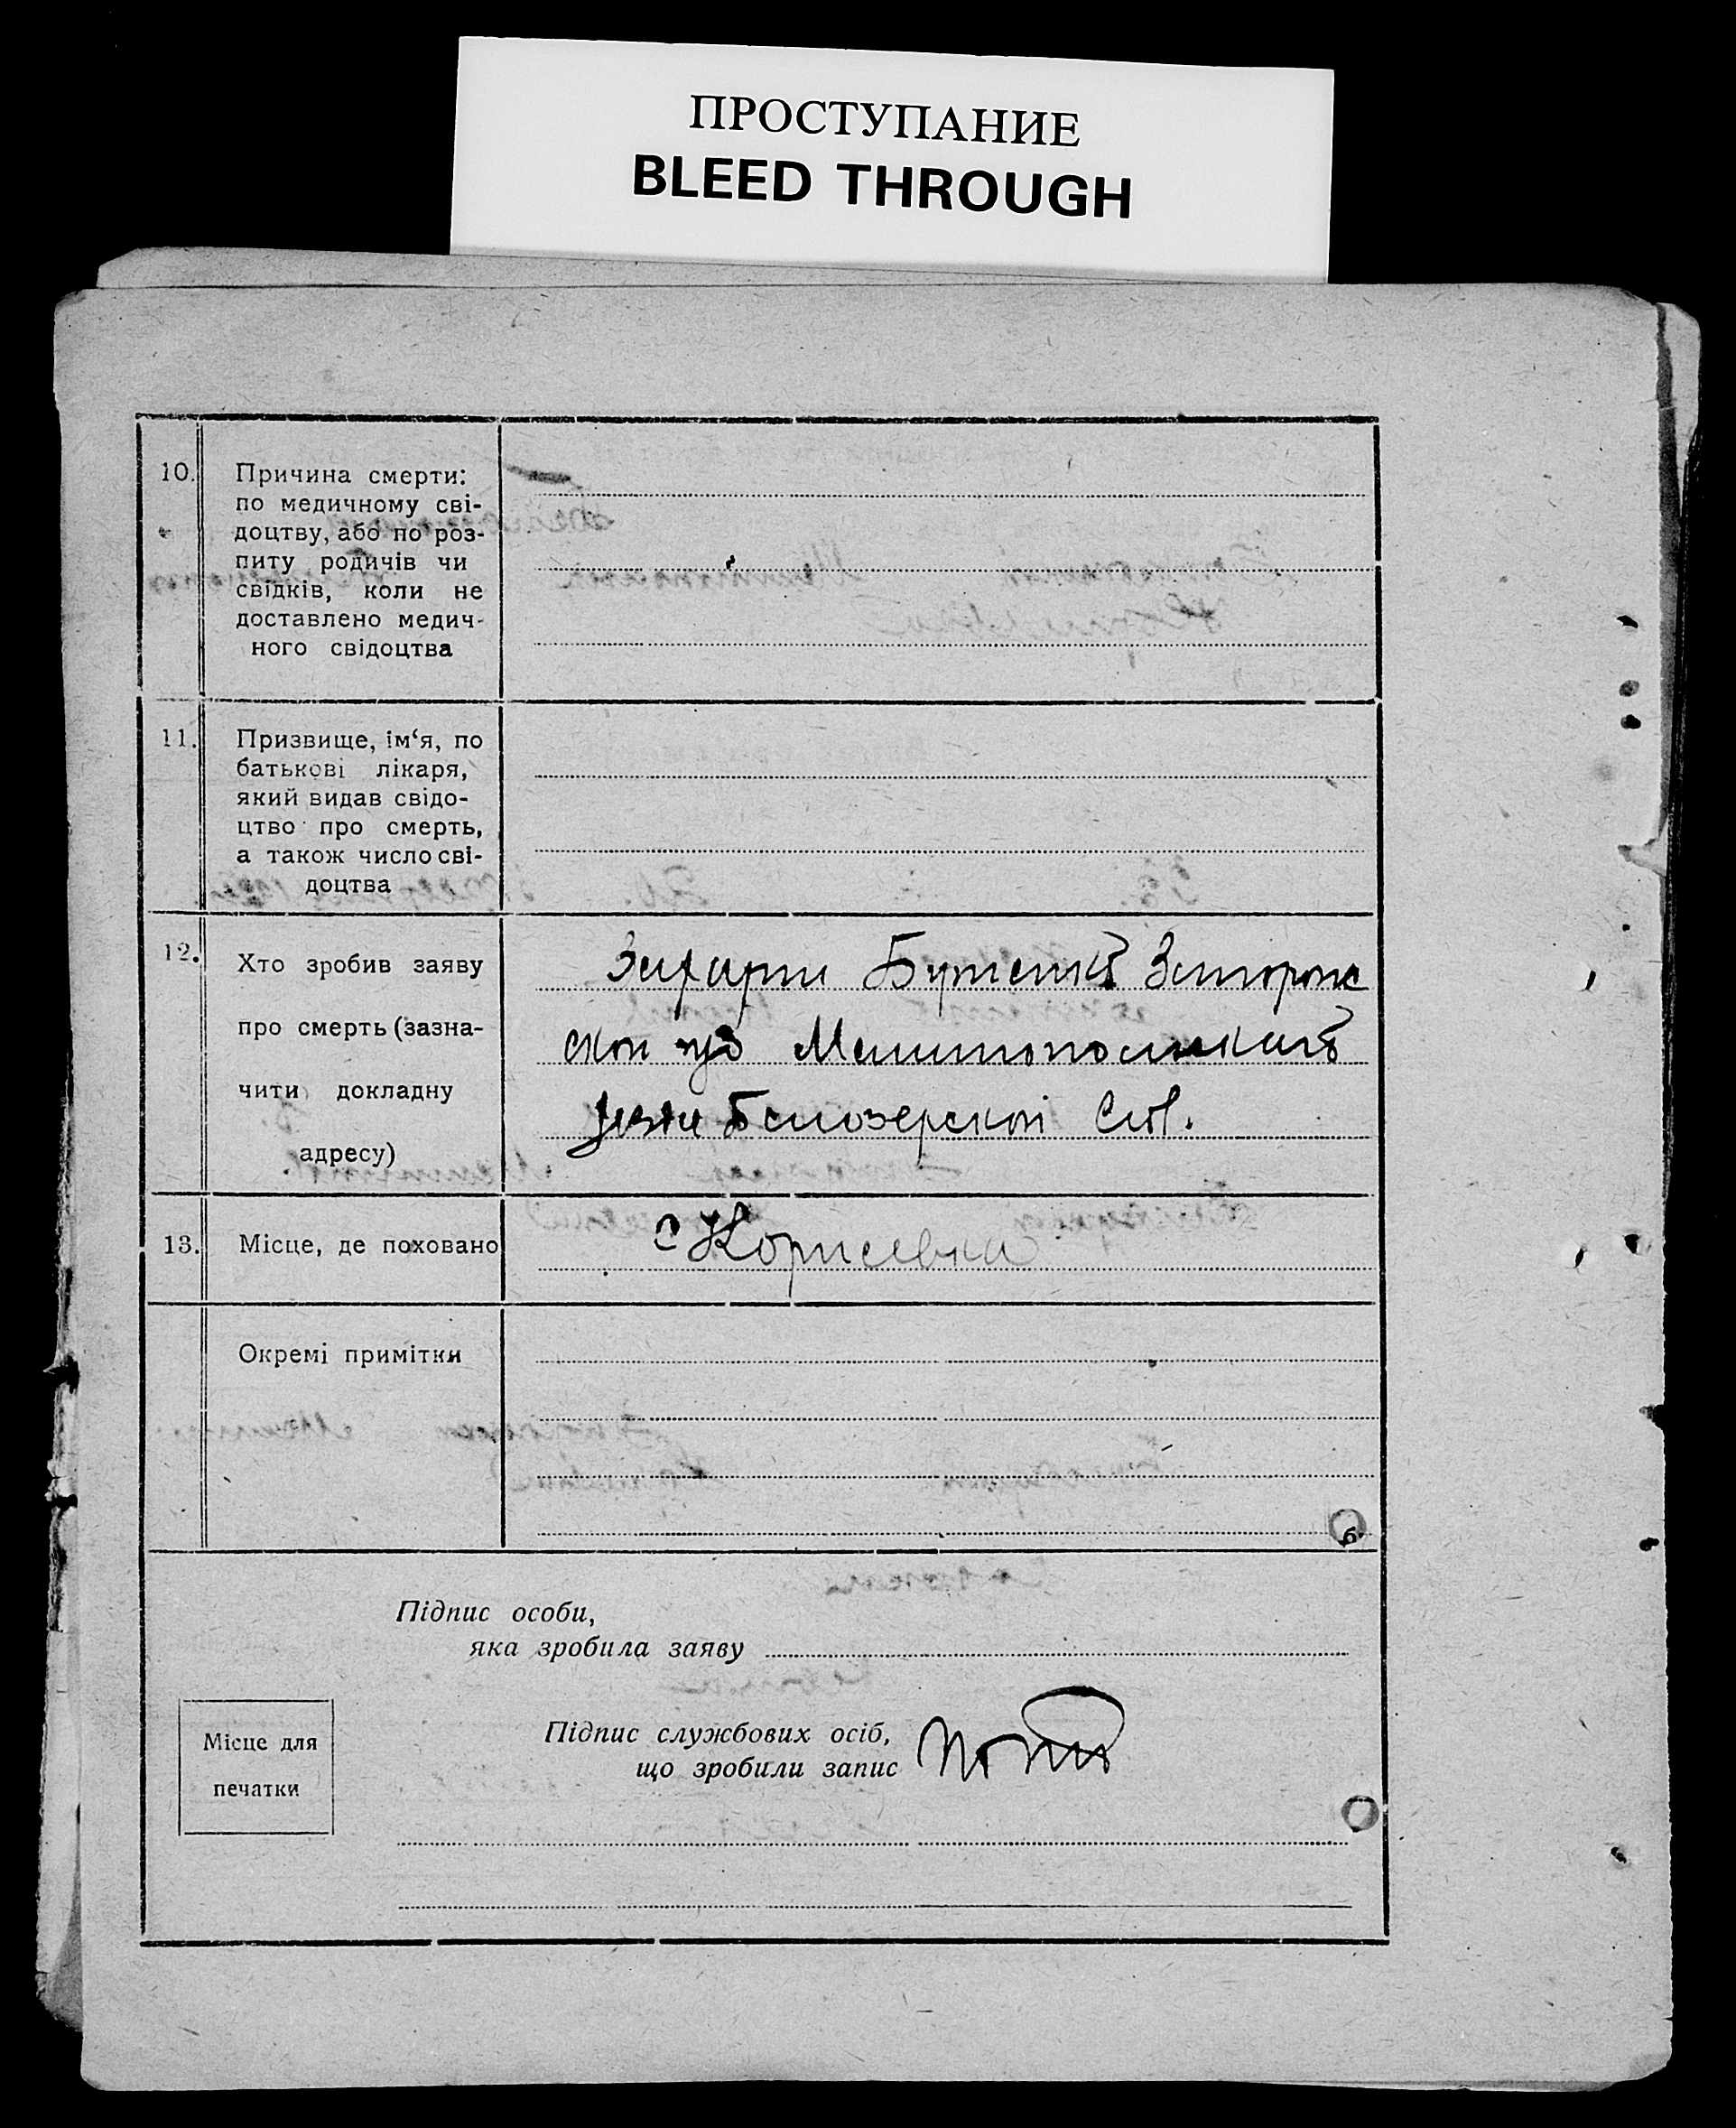 ПРОСТУПАНИЕ
BLEED THROUGH
10. Причина смерти:
по медичному сві-
доцтву, або по роз-
питу родичів чи
свідків, коли не
доставлено медич-
ного свідоцтва
11. Призвище, ім‘я, по
батькові лікаря,
який видав свідо-
цтво про смерть,
а також число сві-
доцтва
12. Хто зробив заяву
про смерть (зазна-
чити докладну
адресу)
Захарти
Мелитопольскаго
Белозерскої
13. Місце, де поховано
с Корнеевка
Окремі примітки
б
Підпис особи,
яка зробила заяву
Місце для
печатки
Підпис службових осіб,
що зробили запис